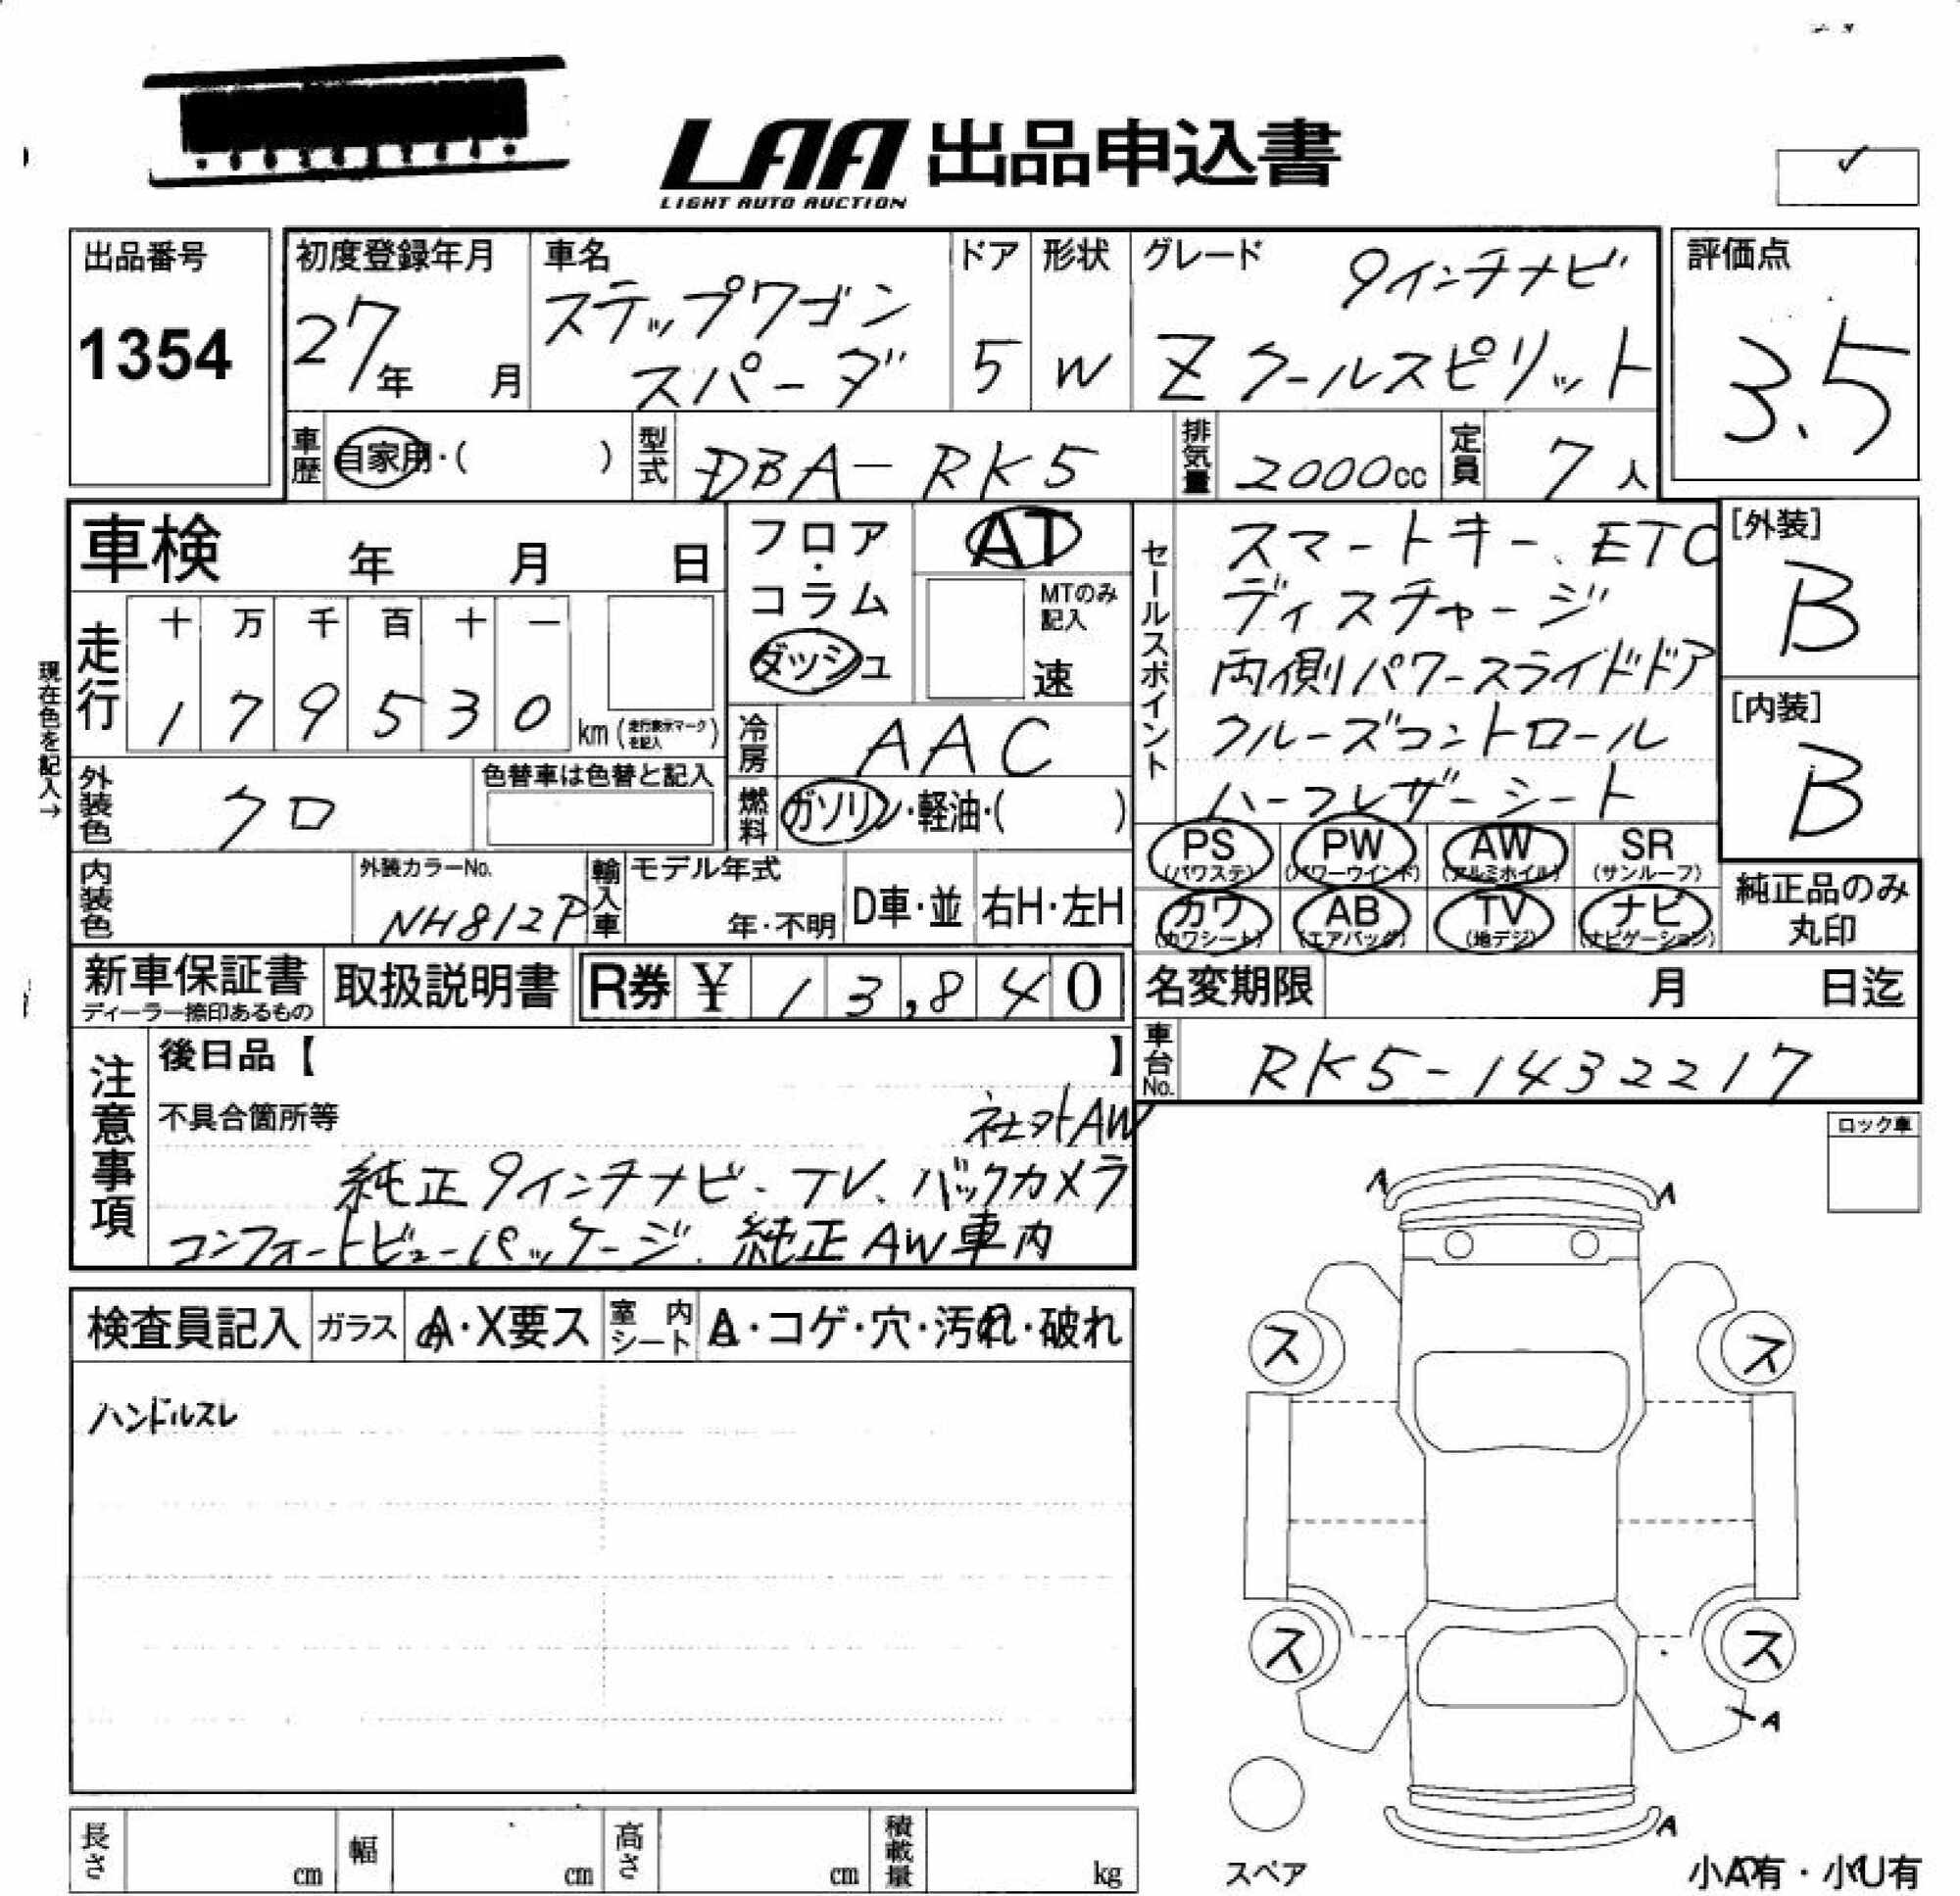 LAA 出品申込書
LIGHT AUTO AUCTION
出品番号
1354
初度登録年月
27年 月
車名
ステップワゴン
スパーダ
ドア
5
形状
W
グレード
9インチナビ
Z クールスピリット
評価点
3.5
車歴 自家用・( )
型式 DBA-RK5
排気量 2000cc
定員 7人
車検 年 月 日
フロア・
コラム
ダッシュ
AT
MTのみ
記入
速
走行
十 万 千 百 十 一
1 7 9 5 3 0 km(走行表示マークを記入)
現在色を記入→
外装色 クロ
色替車は色替と記入
冷房 AAC
燃料 ガソリン・軽油・( )
内装色
外装カラーNo.
NH812P
輸入車
モデル年式
年・不明
D車・並
右H・左H
セールスポイント
スマートキー、ETC
ディスチャージ
両側パワースライドドア
クルーズコントロール
ハーフレザーシート
[外装]
B
[内装]
B
PS (パワステ)
PW (パワーウインド)
AW (アルミホイル)
SR (サンルーフ)
カワ (カワシート)
AB (エアバッグ)
TV (地デジ)
ナビ (ナビゲーション)
純正品のみ
丸印
新車保証書
ディーラー捺印あるもの
取扱説明書
R券 ¥ 13,840
名変期限 月 日迄
車台No. RK5-1432217
注意事項
後日品【 】
不具合箇所等
社外AW
純正9インチナビ、TV、バックカメラ
コンフォートビューパッケージ、純正AW車内
ロック車
検査員記入
ガラス
A・X要ス
室内シート
A・コゲ・穴・汚れ・破れ
ハンドルスレ
A
A
ス
ス
ス
ス
A
A
スペア
小A有・小U有
長さ cm
幅 cm
高さ cm
積載量 kg